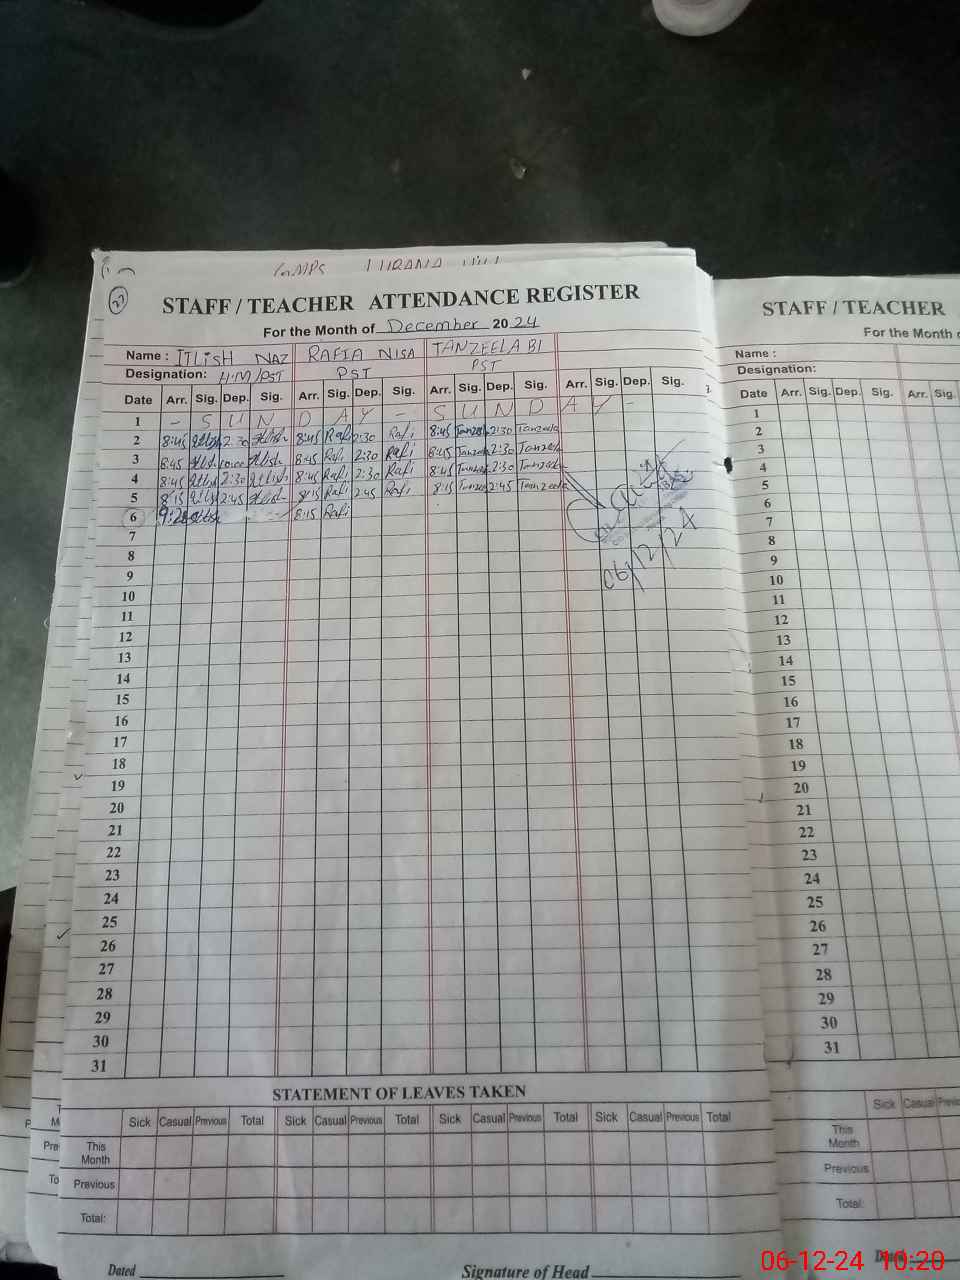 GMPS
27
STAFF / TEACHER ATTENDANCE REGISTER
For the Month of December 2024
Name : ITLISH NAZ RAFIA NISA TANZEELA BI
Designation: H.M/PST PST PST
Date Arr. Sig. Dep. Sig. Arr. Sig. Dep. Sig. Arr. Sig. Dep. Sig. Arr. Sig. Dep. Sig.
1 - S U N D A Y - S U N D A Y -
2 8:45 Itlish 2:30 Itlish 8:45 Rafi 2:30 Rafi 8:45 Tanzeela 2:30 Tanzeela
3 8:45 Itlish 10:00 Itlish 8:45 Rafi 2:30 Rafi 8:45 Tanzeela 2:30 Tanzeela
4 8:45 Itlish 2:30 Itlish 8:45 Rafi 2:30 Rafi 8:45 Tanzeela 2:30 Tanzeela
5 8:15 Itlish 2:45 Itlish 8:15 Rafi 2:45 Rafi 8:15 Tanzeela 2:45 Tanzeela
6 9:20 Itlish 8:15 Rafi
06/12/24
7
8
9
10
11
12
13
14
15
16
17
18
19
20
21
22
23
24
25
26
27
28
29
30
31
STATEMENT OF LEAVES TAKEN
Sick Casual Previous Total Sick Casual Previous Total Sick Casual Previous Total Sick Casual Previous Total
This Month
Previous
Total:
Dated Signature of Head
STAFF / TEACHER
For the Month
Name :
Designation:
Date Arr. Sig. Dep. Sig. Arr. Sig.
1
2
3
4
5
6
7
8
9
10
11
12
13
14
15
16
17
18
19
20
21
22
23
24
25
26
27
28
29
30
31
Sick Casual Previous
This Month
Previous
Total:
Dated
06-12-24 10:20